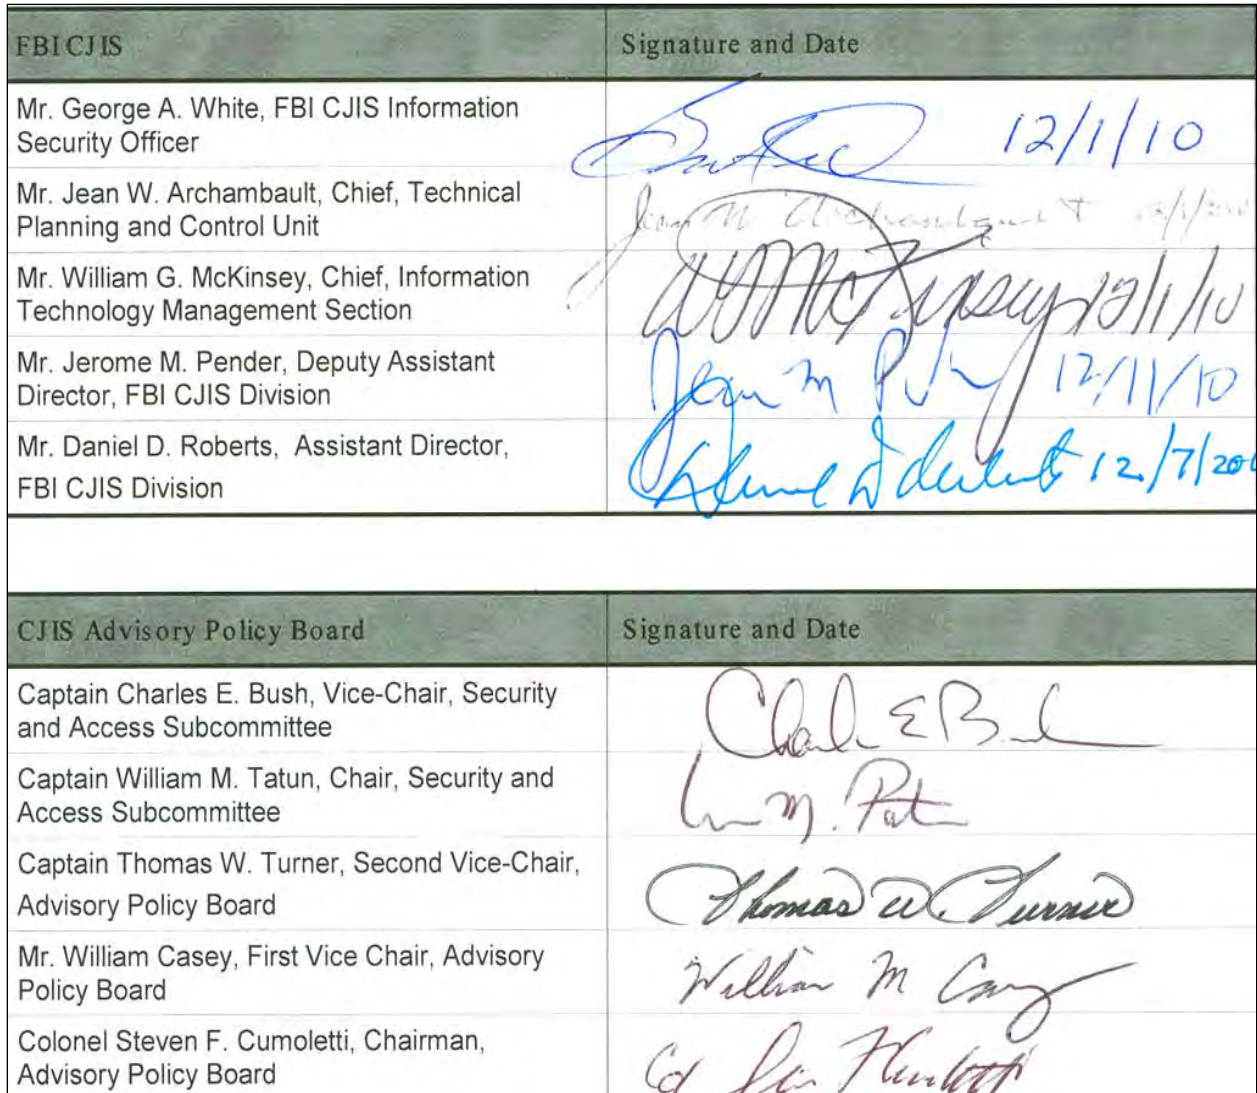 FBI CJIS
Signature and Date
Mr. George A. White, FBI CJIS Information
Security Officer
12/1/10
Mr. Jean W. Archambault, Chief, Technical
Planning and Control Unit
Jean W Archambault
Mr. William G. McKinsey, Chief, Information
Technology Management Section
WMcKinsey 12/1/10
Mr. Jerome M. Pender, Deputy Assistant
Director, FBI CJIS Division
12/1/10
Mr. Daniel D. Roberts, Assistant Director,
FBI CJIS Division
CJIS Advisory Policy Board
Signature and Date
Captain Charles E. Bush, Vice-Chair, Security
and Access Subcommittee
Charles E Bush
Captain William M. Tatun, Chair, Security and
Access Subcommittee
Captain Thomas W. Turner, Second Vice-Chair,
Advisory Policy Board
Thomas W. Turner
Mr. William Casey, First Vice Chair, Advisory
Policy Board
William M Casey
Colonel Steven F. Cumoletti, Chairman,
Advisory Policy Board